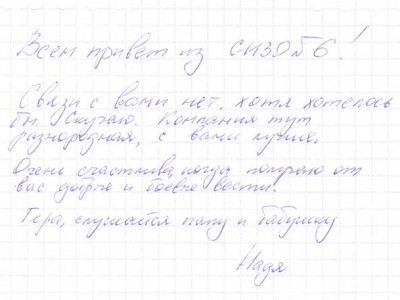 Всем привет из СИЗО №6!
Связи с вами нет, хотя хотелось
бы. Скучаю. Компания тут
разнородная, с вами лучше.
Очень счастлива, когда получаю от
вас добрые и боевые вести.
Гера, слушайся папу и бабушку.
Надя